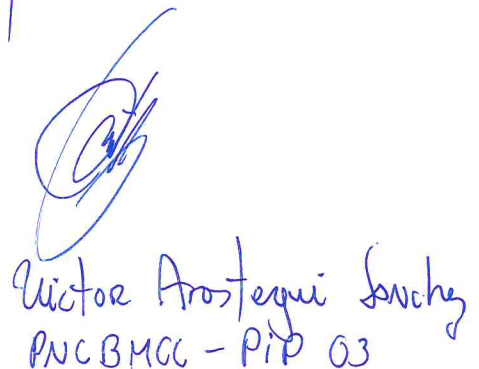 Victor Arostegui Sanchez
PNCBMCC - PiP 03